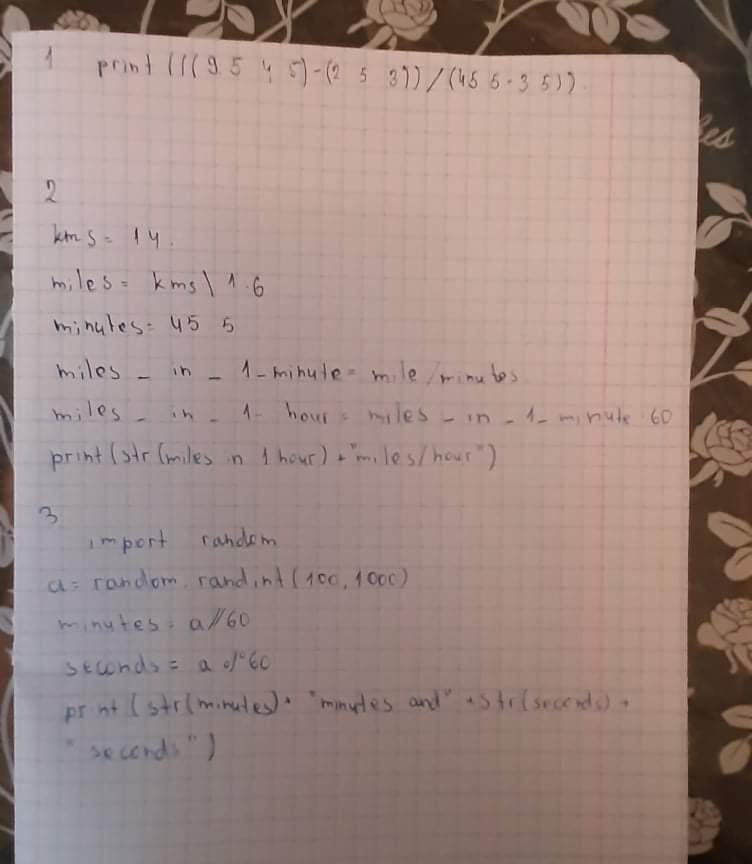 1 print (((9.5 4 5)-(2 5 3))/(45 5-3 5))
2
kms = 14.
miles = kms\1.6
minutes = 45 5
miles_in_1-minute = mile/minutes
miles_in_1-hour = miles_in_1-minute 60
print(str(miles in 1 hour) + "miles/hour")
3
import random
a = random.randint(100,1000)
minutes = a//60
seconds = a % 60
print (str(minutes) + "minutes and" + str(seconds) +
"seconds")